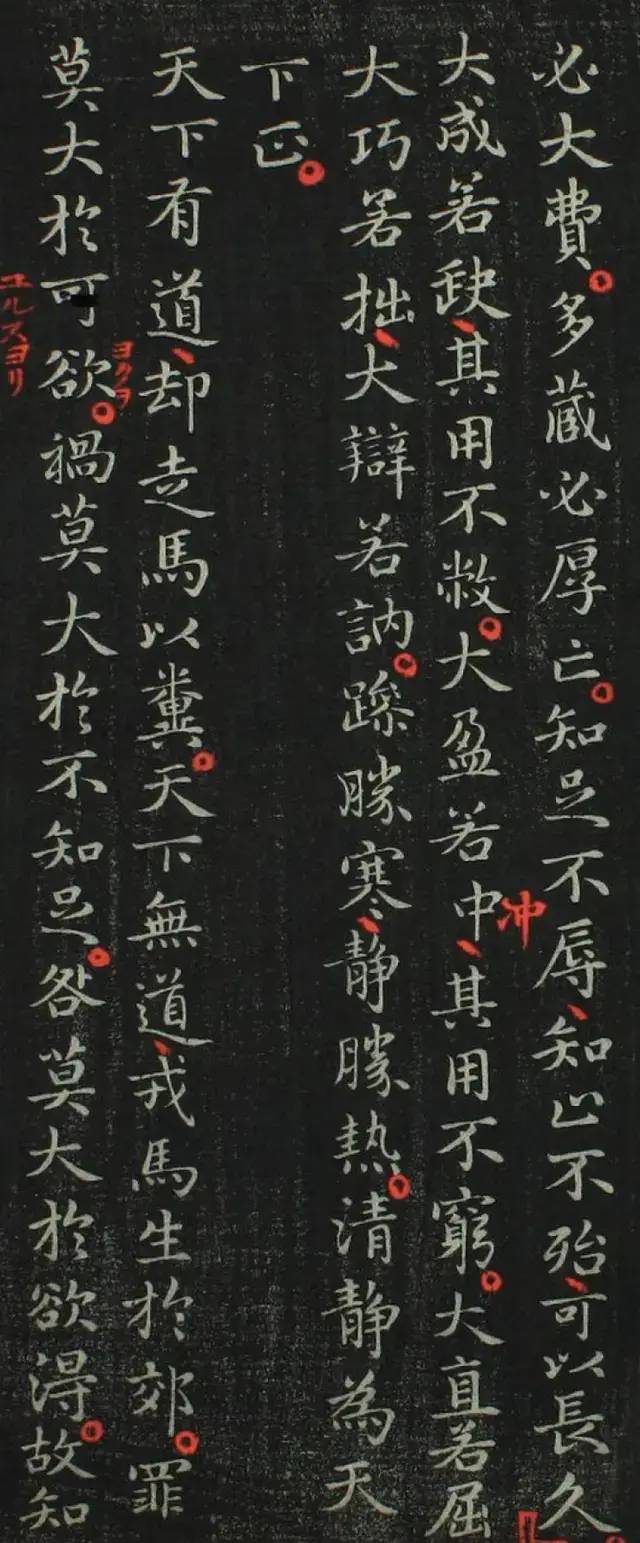 必大費多蔵必厚亡知足不辱知止不殆可以長久
大成若缺其用不敝大盈若中其用不窮大直若屈
冲
大巧若拙大辯若訥躁勝寒靜勝熱清靜為天
下正
天下有道却走馬以糞天下無道戎馬生於郊罪
莫大於可欲禍莫大於不知足咎莫大於欲得故知
ヨクヲ
ユルスヨリ